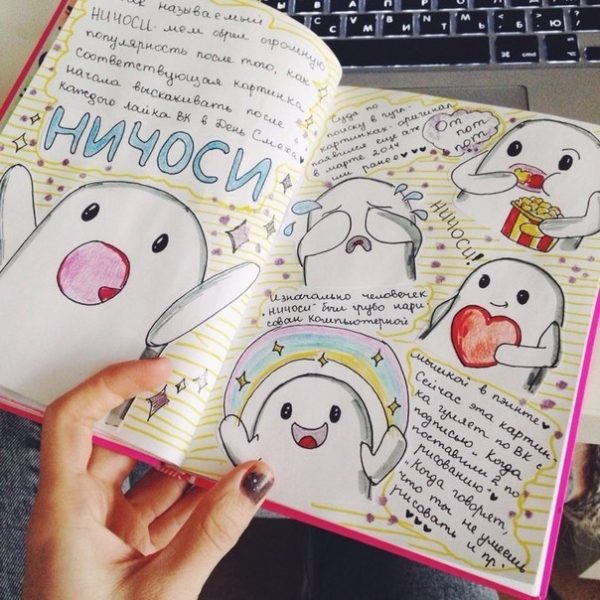 называемый
НИЧОСИ- мем обрел огромную
популярность после того, как
соответствующая картинка
начала выскакивать после
каждого лайка ВК в День Смеха
НИЧОСИ
Судя по
поиску в гугл-
картинках- оригинал
появился ещё аж
в марте 2014
или ранее
От
пот
пот
НИЧОСИ!
Изначально человечек
"ничоси" был грубо нари-
сован компьютерной
мышкой в пэинте
Сейчас эта картин-
ка гуляет по ВК с
подписью "Когда
поставили 2 по
рисованию"
"Когда говорят,
что ты не умеешь
рисовать и пр.